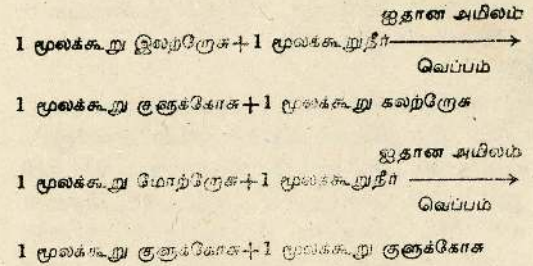 ஐதான அமிலம்
1 மூலக்கூறு இலற்றோசு+1 மூலக்கூறுநீர்⟶
வெப்பம்
1 மூலக்கூறு குளுக்கோசு+1 மூலக்கூறு கலற்றோசு
ஐதான அமிலம்
1 மூலக்கூறு மோற்றோசு+1 மூலக்கூறுநீர் ⟶
வெப்பம்
1 மூலக்கூறு குளுக்கோசு+1 மூலக்கூறு குளுக்கோசு